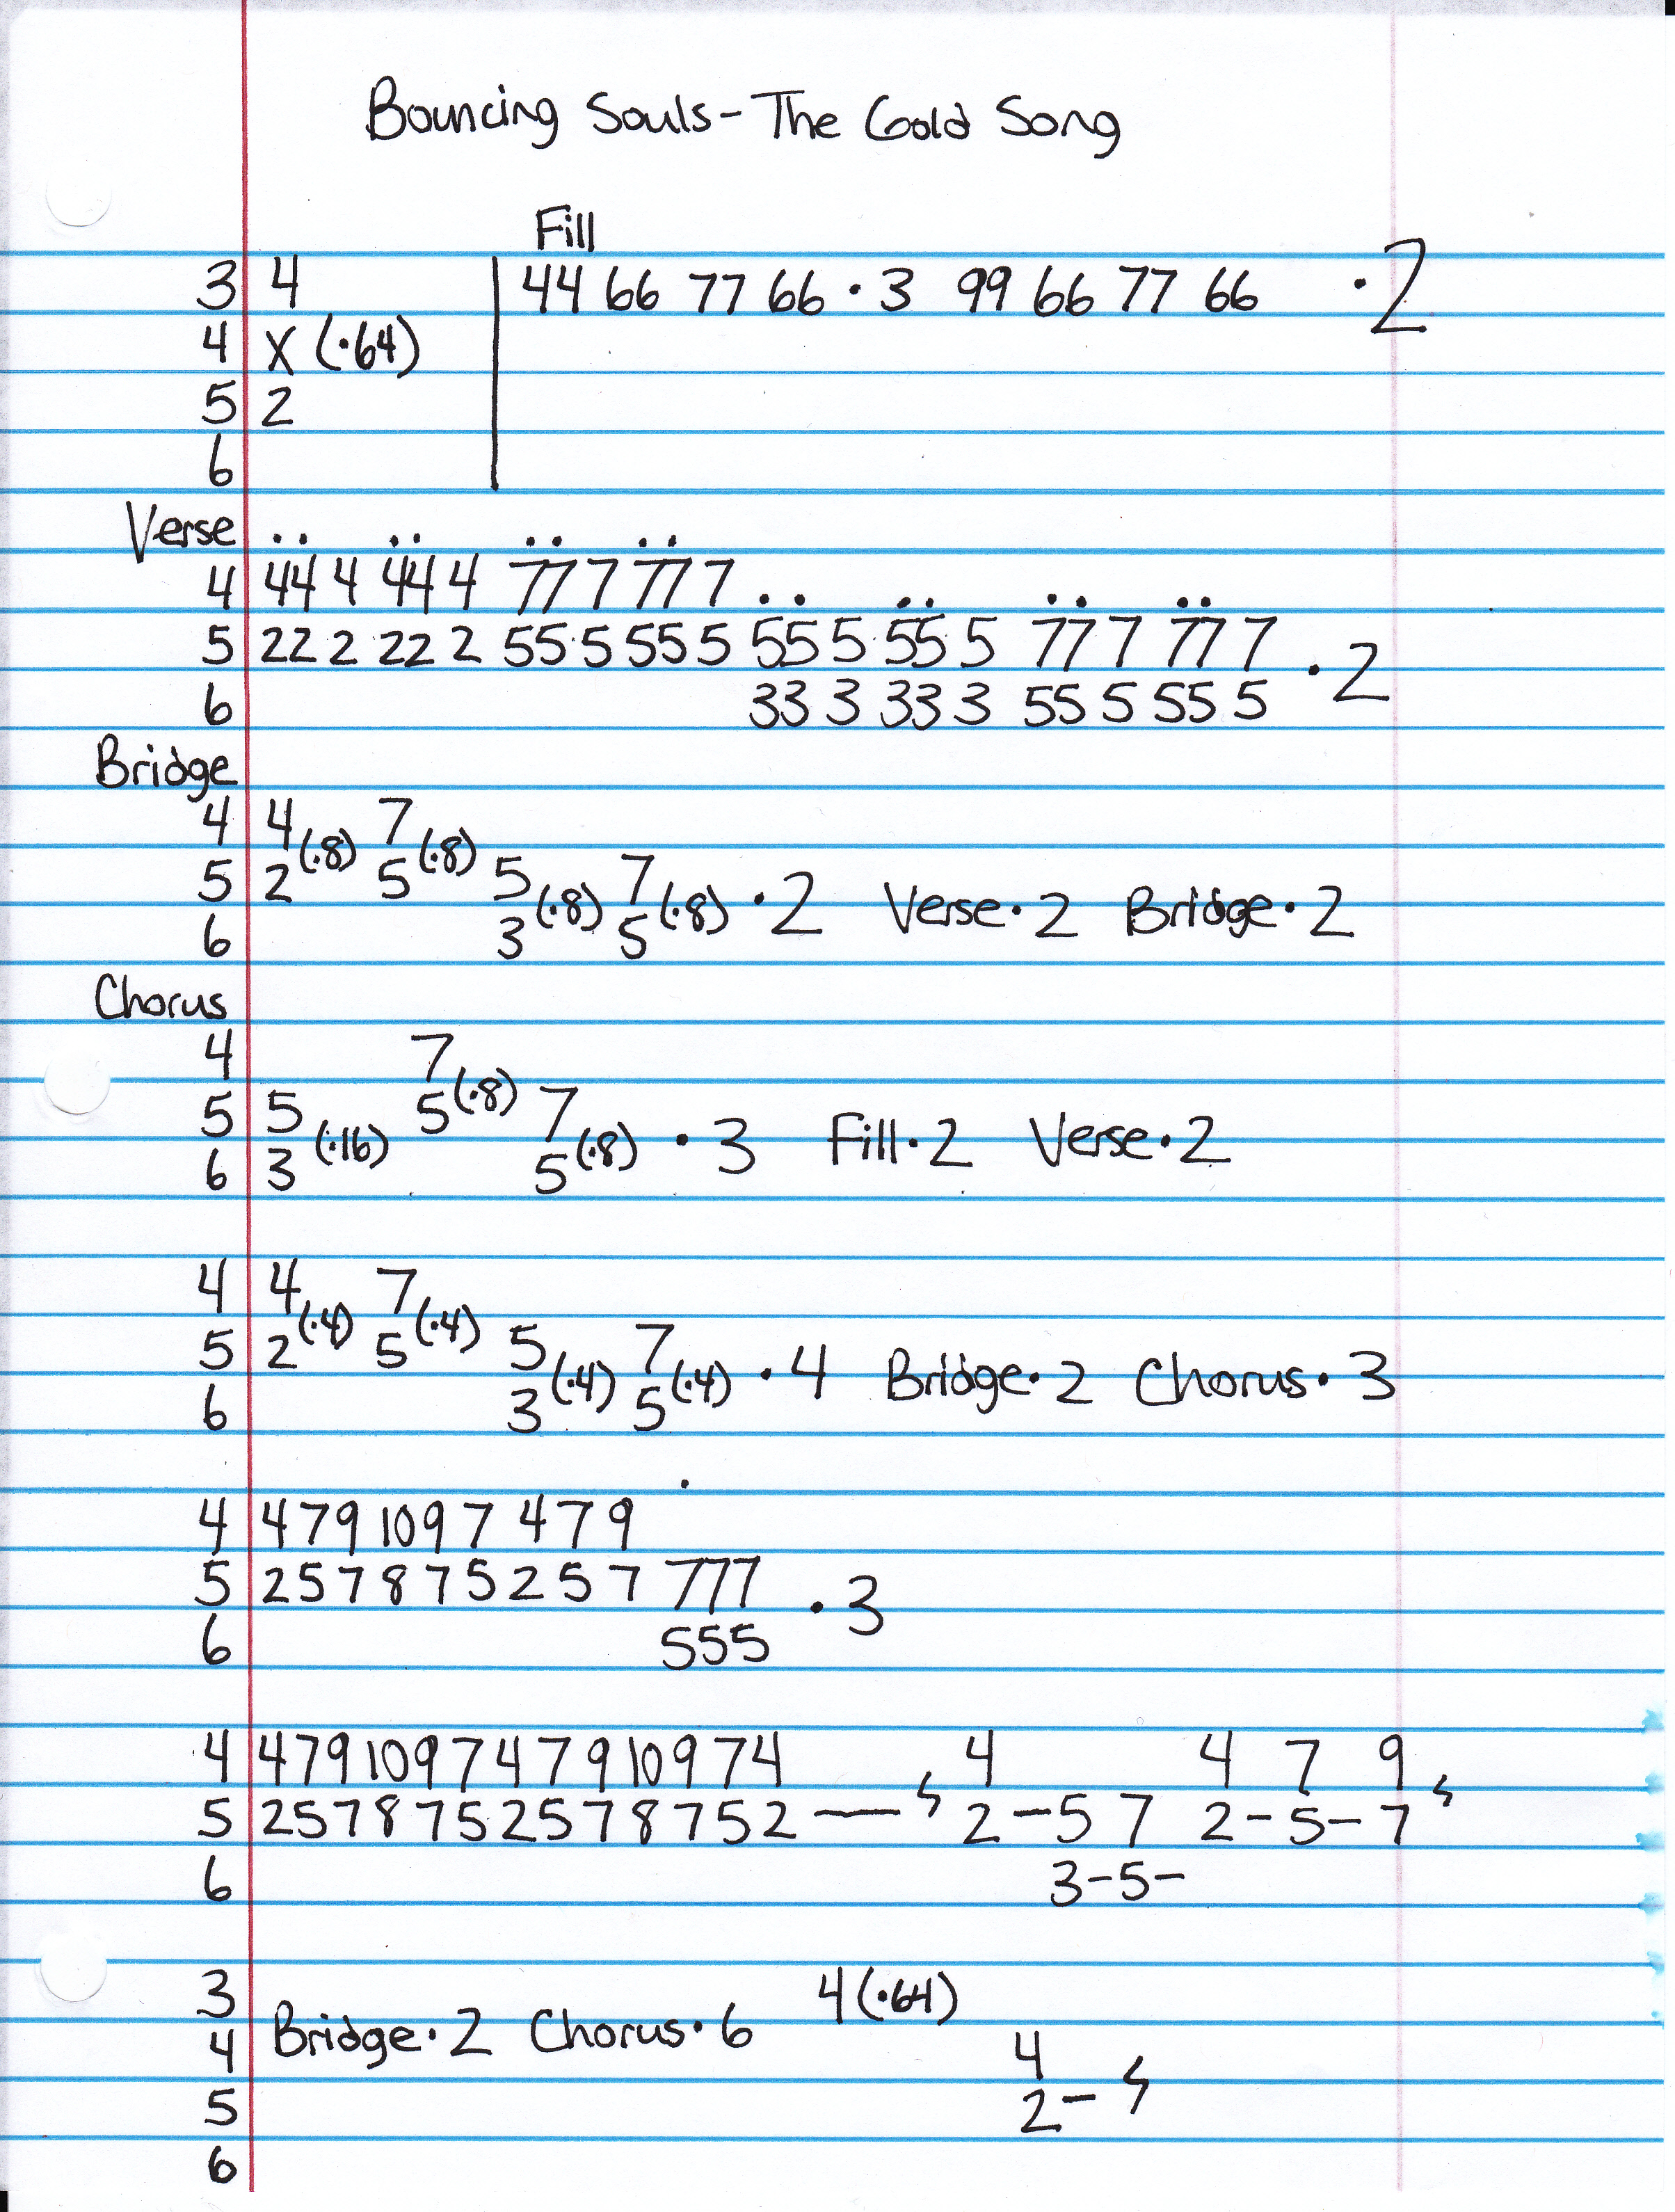 Bouncing Souls - The Gold Song
Fill
3 4 44 66 77 66 · 3 99 66 77 66 · 2
4 X (·64)
5 2
6
Verse
4 44 4 44 4 77 7 77 7
5 22 2 22 2 55 5 55 5 55 5 55 5 77 7 77 7 · 2
6 33 3 33 3 55 5 55 5
Bridge
4 4 (·8) 7 (·8)
5 2 5 5 (·8) 7 (·8) · 2 Verse · 2 Bridge · 2
6 3 5
Chorus
4 7
5 5 (·16) 5 (·8) 7 (·8) · 3 Fill · 2 Verse · 2
6 3 5
4 4 (·4) 7 (·4)
5 2 5 5 (·4) 7 (·4) · 4 Bridge · 2 Chorus · 3
6 3 5
4 4 7 9 10 9 7 4 7 9
5 2 5 7 8 7 5 2 5 7 777 · 3
6 555
4 4 7 9 10 9 7 4 7 9 10 9 7 4 4 4 7 9
5 2 5 7 8 7 5 2 5 7 8 7 5 2 — 2 - 5 7 2 - 5 - 7
6 3 - 5 -
3 4 (·64)
Bridge · 2 Chorus · 6
4 4
5 2 -
6